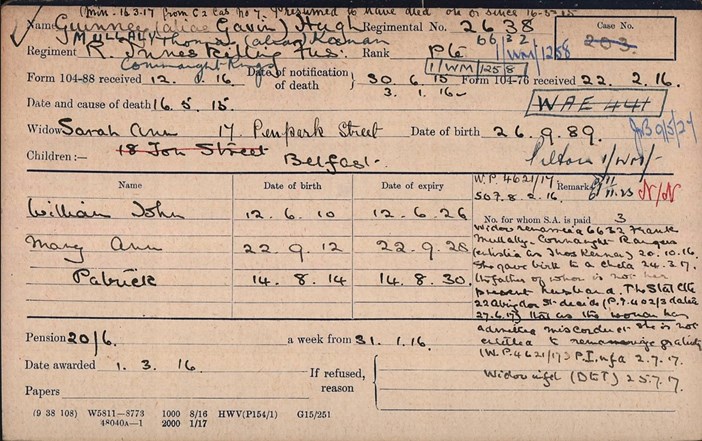 (Min. 16.3.17 from C2 Cas No 7. Presumed to have died on or since 16-5-15
Gunner (alias Gavin) Hugh Regimental No. 2638
MULLALY Thomas (alias Keenan 6632
Regiment R. Innes Killing Fus: Rank Pte 1/WM/1258
Connaught Rangers 1/WM/1258
Case No.
203
Form 104-88 received 12. 16. Date of notification of death 30.6.15 Form 104-76 received 22. 2.16.
3. 1. 16
Date and cause of death 16. 5. 15. WAE 441
Widow Sarah Ann 17 Penperk Street Date of birth 26. 9. 89. 9/5/27
Children:— 18 Ton Street Belfast.
1/WM/-
Name Date of birth Date of expiry W.P. 4621/17 Remarks N/N
507.8.2.16.
William John 12. 6. 10 12. 6. 26 No. for whom S.A. is paid 3
Mary Ann 22. 9. 12 22. 9. 28
Patrick 14. 8. 14 14. 8. 30.
Widow remarried 6632 Frank
Mullally, Connaught Rangers
(enlisted as Thos Keenan) 20.10.16.
She gave birth to a child 24.3.17.
the father of whom is not her
present husband. The Stat Ctte
22 Abingdon St decide (P.9.402/3 dated
27.6.17) that as the woman has
admitted misconduct she is not
entitled to remarriage gratuity
(W.P. 4621/17) P.I. nfa 2.7.17.
Widow infd (DET) 25.7.17.
Pension 20/6. a week from 31. 1. 16.
Date awarded 1. 3. 16 If refused, reason
Papers
(9 38 108) W5811—8773 1000 8/16 HWV(P154/1) G15/251
48040A—1 2000 1/17